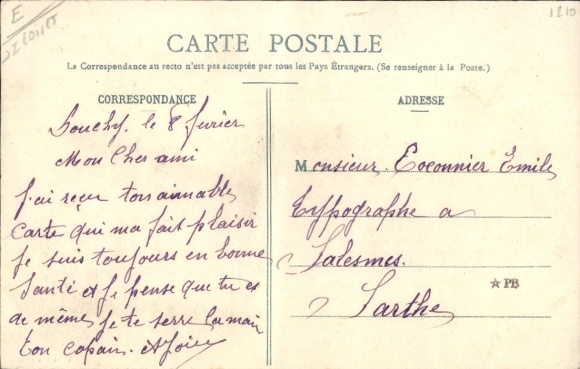 E
1210
CARTE POSTALE
La Correspondance au recto n'est pas acceptée par tous les Pays Étrangers. (Se renseigner à la Poste.)
CORRESPONDANCE
ADRESSE
Douchy. le 8 fevrier
Mon Cher ami
j'ai reçu ton aimable
Carte qui ma fait plaisir
je suis toujours en bonne
Santé et je pense que tu es
de même je te serre la main
ton copain.
Monsieur. Coconnier Emile
Typographe a
Solesmes.
Sarthe
☆ PB